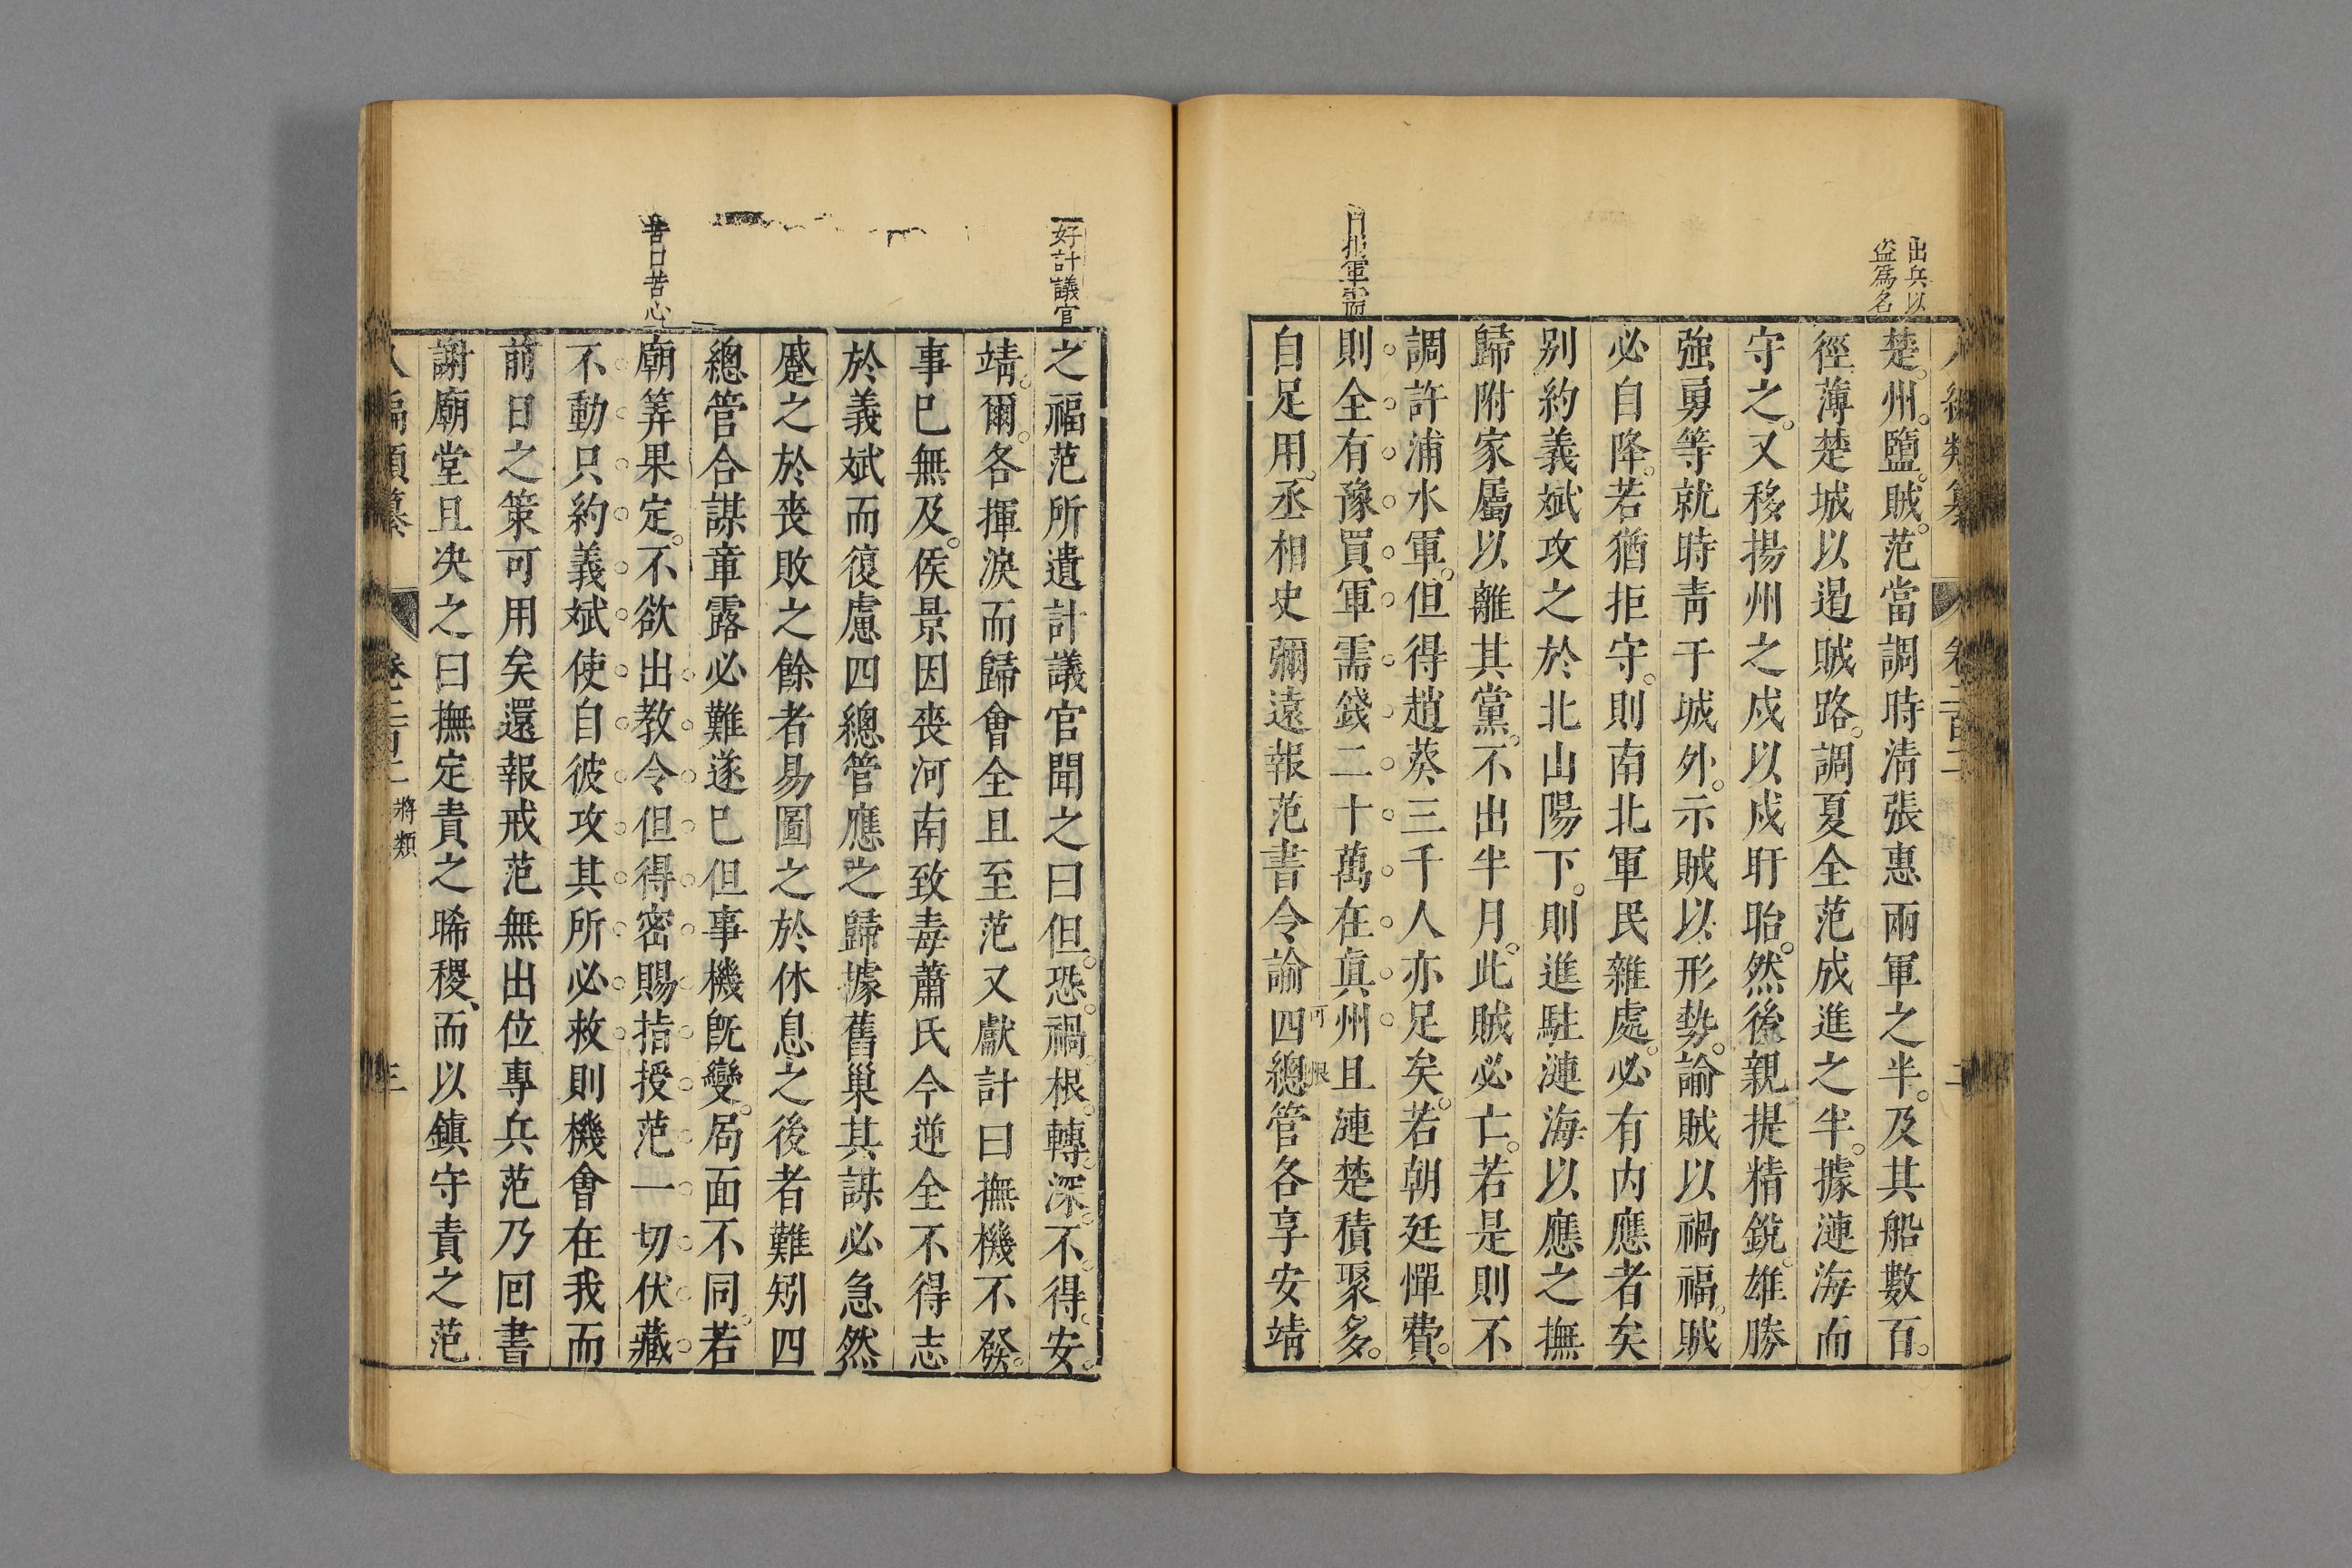 出兵以
盜爲名
八編類纂 卷二百二 二
楚州鹽賊范當調時淸張惠兩軍之半及其船數百
徑薄楚城以遏賊路調夏全范成進之半據漣海而
守之又移揚州之戍以戍盱眙然後親提精銳雄勝
強勇等就時靑于城外示賊以形勢諭賊以禍福賊
必自降若猶拒守則南北軍民雜處必有內應者矣
别約義斌攻之於北山陽下則進駐漣海以應之撫
歸附家屬以離其黨不出半月此賊必亡若是則不
調許浦水軍但得趙葵三千人亦足矣若朝廷憚費
軍需
則全有豫買軍需錢二十萬在眞州且漣楚積聚多
可恨
自足用丞相史彌遠報范書令諭四總管各享安靖
好計議官
之福范所遣計議官聞之曰但恐禍根轉深不得安
靖爾各揮淚而歸會全且至范又獻計曰撫機不發
事已無及侯景因喪河南致毒蕭氏今逆全不得志
於義斌而復慮四總管應之歸據舊巢其謀必急然
蹙之於喪敗之餘者易圖之於休息之後者難矧四
總管合謀章露必難遂已但事機旣變局面不同若
苦口苦心
廟筭果定不欲出教令但得密賜指授范一切伏藏
不動只約義斌使自彼攻其所必救則機會在我而
前日之策可用矣還報戒范無出位專兵范乃回書
謝廟堂且决之曰撫定責之晞稷而以鎭守責之范
八編類纂 卷二百二 將類 三